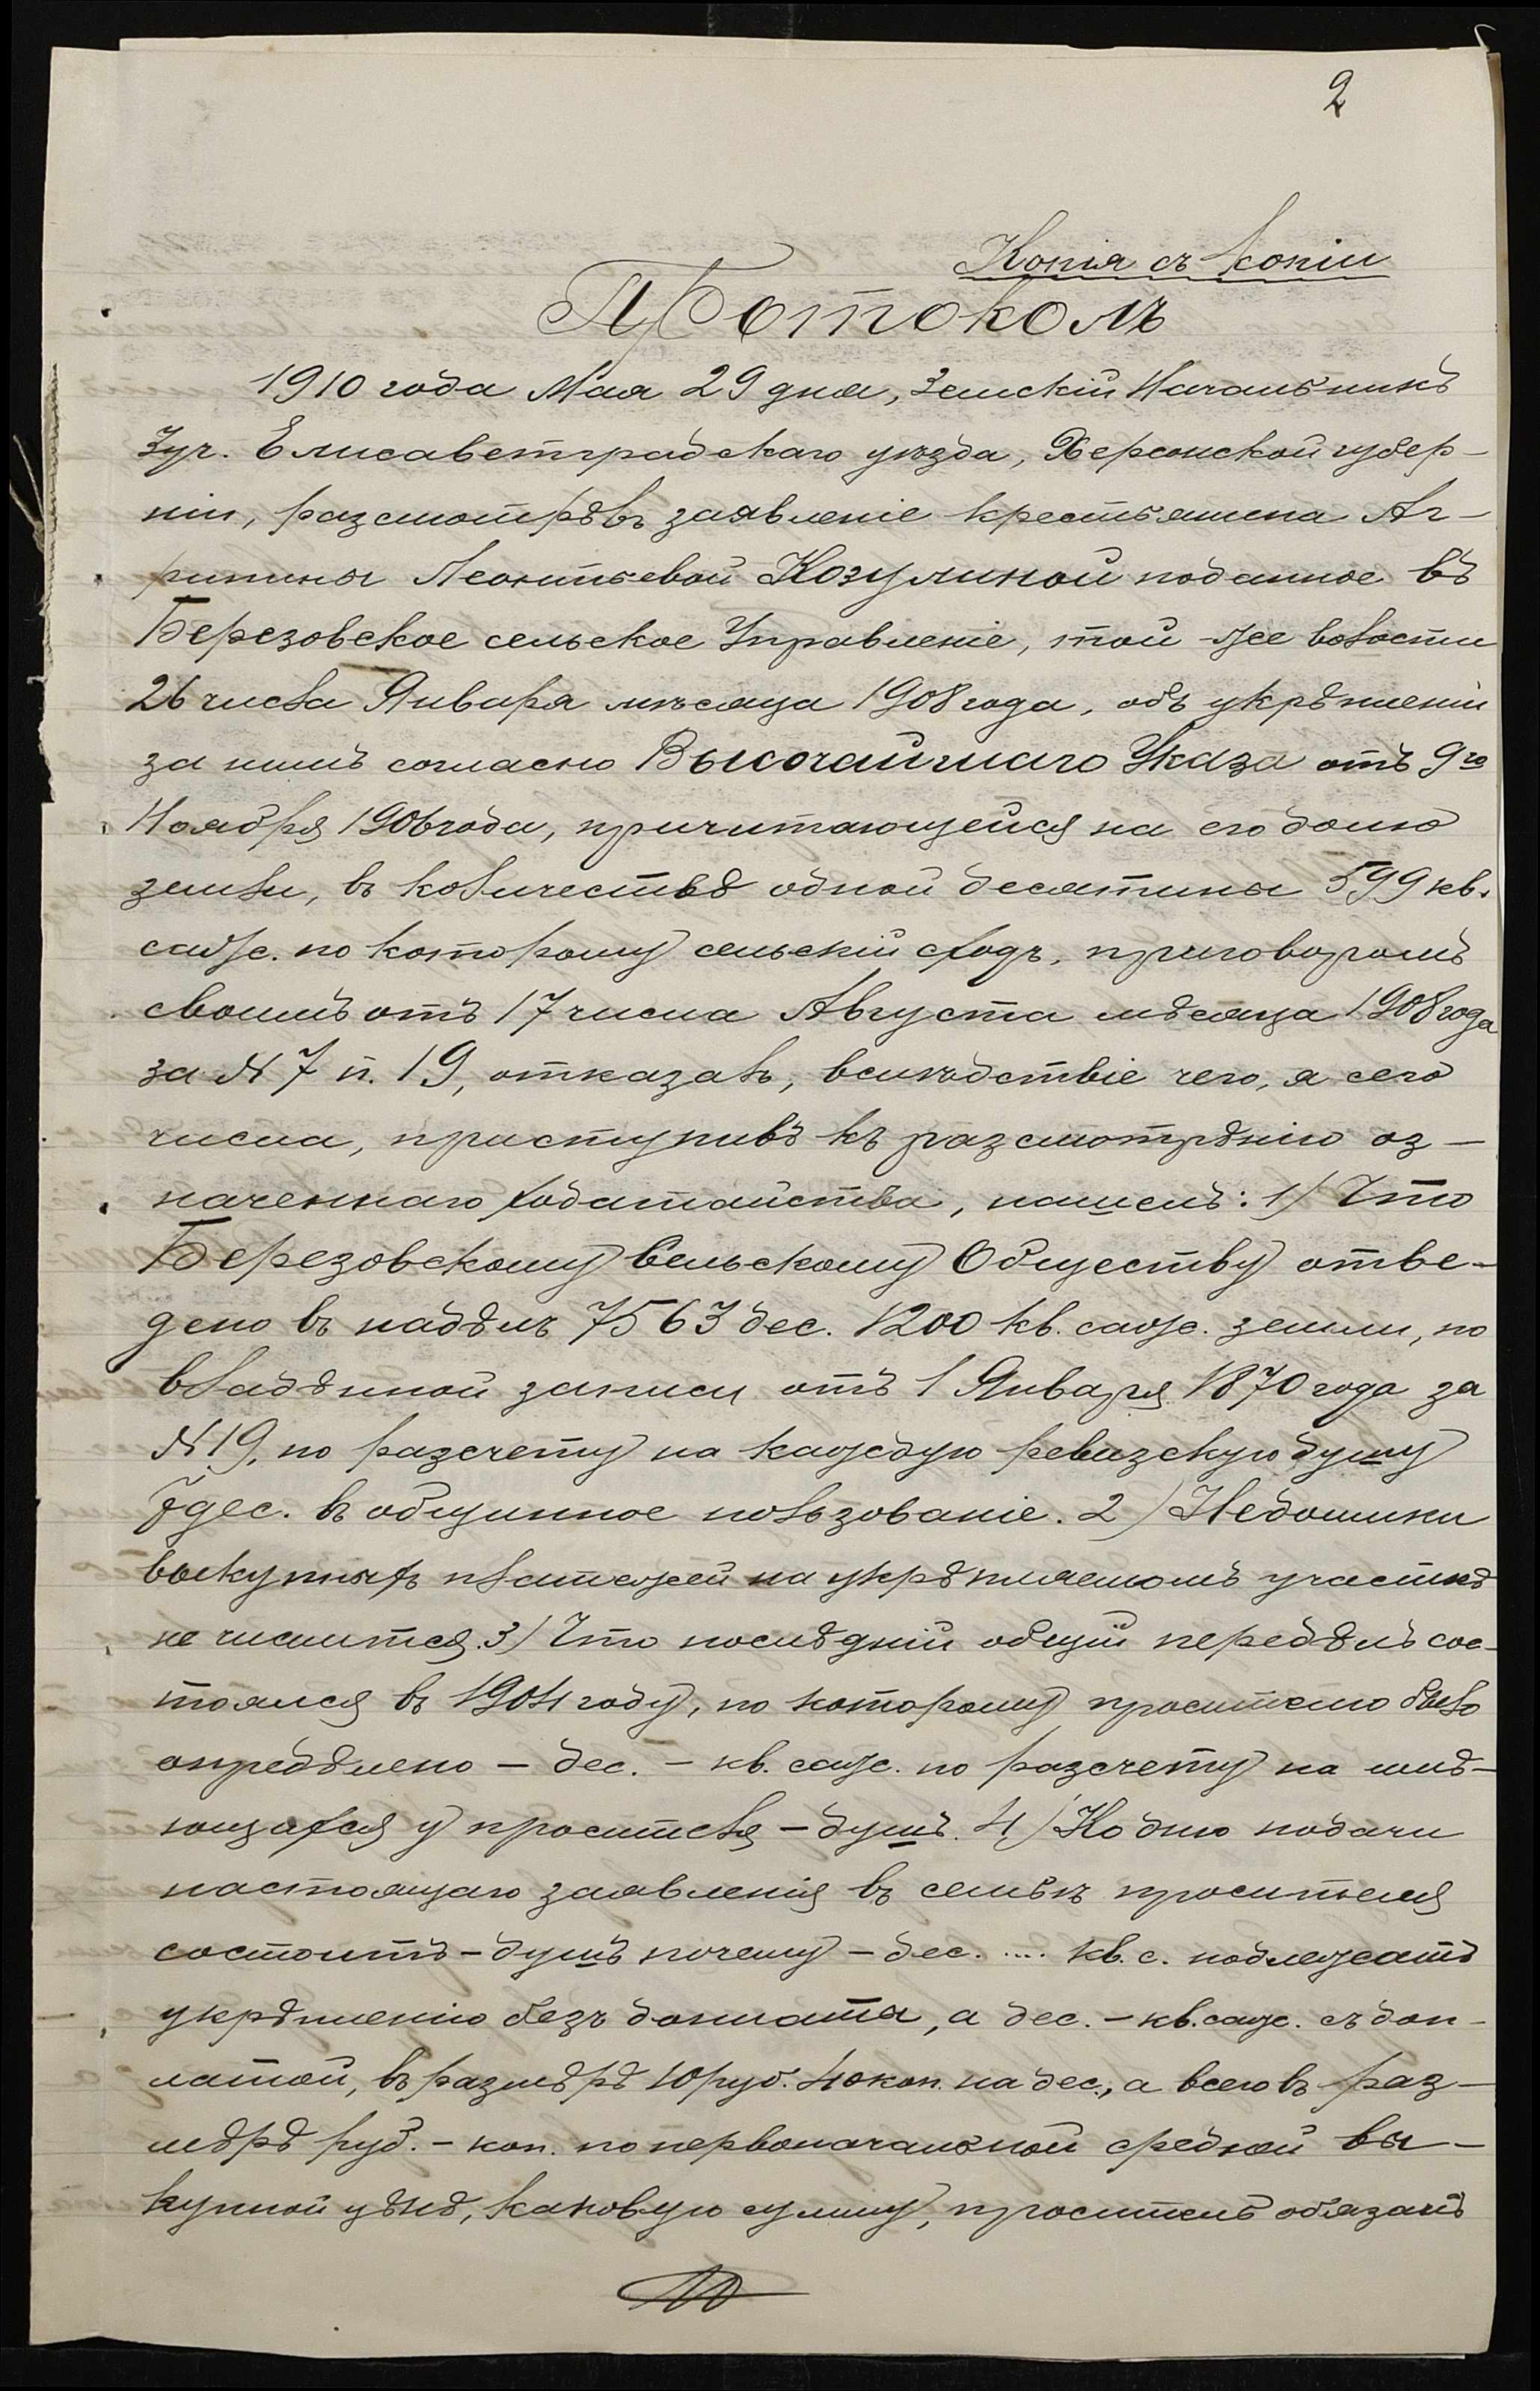 2
Копія съ копіи
Протоколъ
1910 года Мая 29 дня, Земскій Начальникъ
3 уч. Елисаветградскаго уѣзда, Херсонской губер-
ніи, разсмотрѣвъ заявленіе крестьянина Аг-
рипины Леонтьевой Козулиной поданное въ
Березовское сельское Управленіе, той-же волости
26 числа Января мѣсяца 1908 года, объ укрѣпленіи
за нимъ согласно Высочайшаго Указа отъ 9го
Ноября 1906 года, причитающейся на его долю
земли, въ количествѣ одной десятины 599 кв.
саж. по которому сельскій сходъ, приговоромъ
своимъ отъ 17 числа Августа мѣсяца 1908 года
за N 7 п. 19, отказалъ, вслѣдствіе чего, я сего
числа, приступивъ къ разсмотрѣнію оз-
наченнаго ходатайства, нашелъ: 1) Что
Березовскому Сельскому Обществу отве-
дено въ надѣлъ 7563 дес. 1200 кв. саж. земли, по
владѣнной записи отъ 1 Января 1870 года за
N 19, по разсчету на каждую ревизскую душу
дес. въ общинное пользованіе. 2) Недоимки
выкупныхъ платежей на укрѣпляемомъ участкѣ
не числится. 3) Что послѣдній общій передѣлъ сос-
тоялся въ 1904 году, по которому просителю было
опредѣлено - дес. - кв. саж. по разсчету на имѣ-
ющихся у просителя - душъ. 4) Ко дню подачи
настоящаго заявленія въ семьѣ просителя
состоитъ - душъ почему - дес. .... кв. с. подлежатъ
укрѣпленію безъ доплаты, а дес. - кв. саж. съ доп-
латой, въ размѣрѣ 10 руб. 40 коп. на дес., а всего въ раз-
мѣрѣ руб. - коп. по первоначальной средней вы-
купной цѣнѣ, каковую сумму, проситель обязанъ